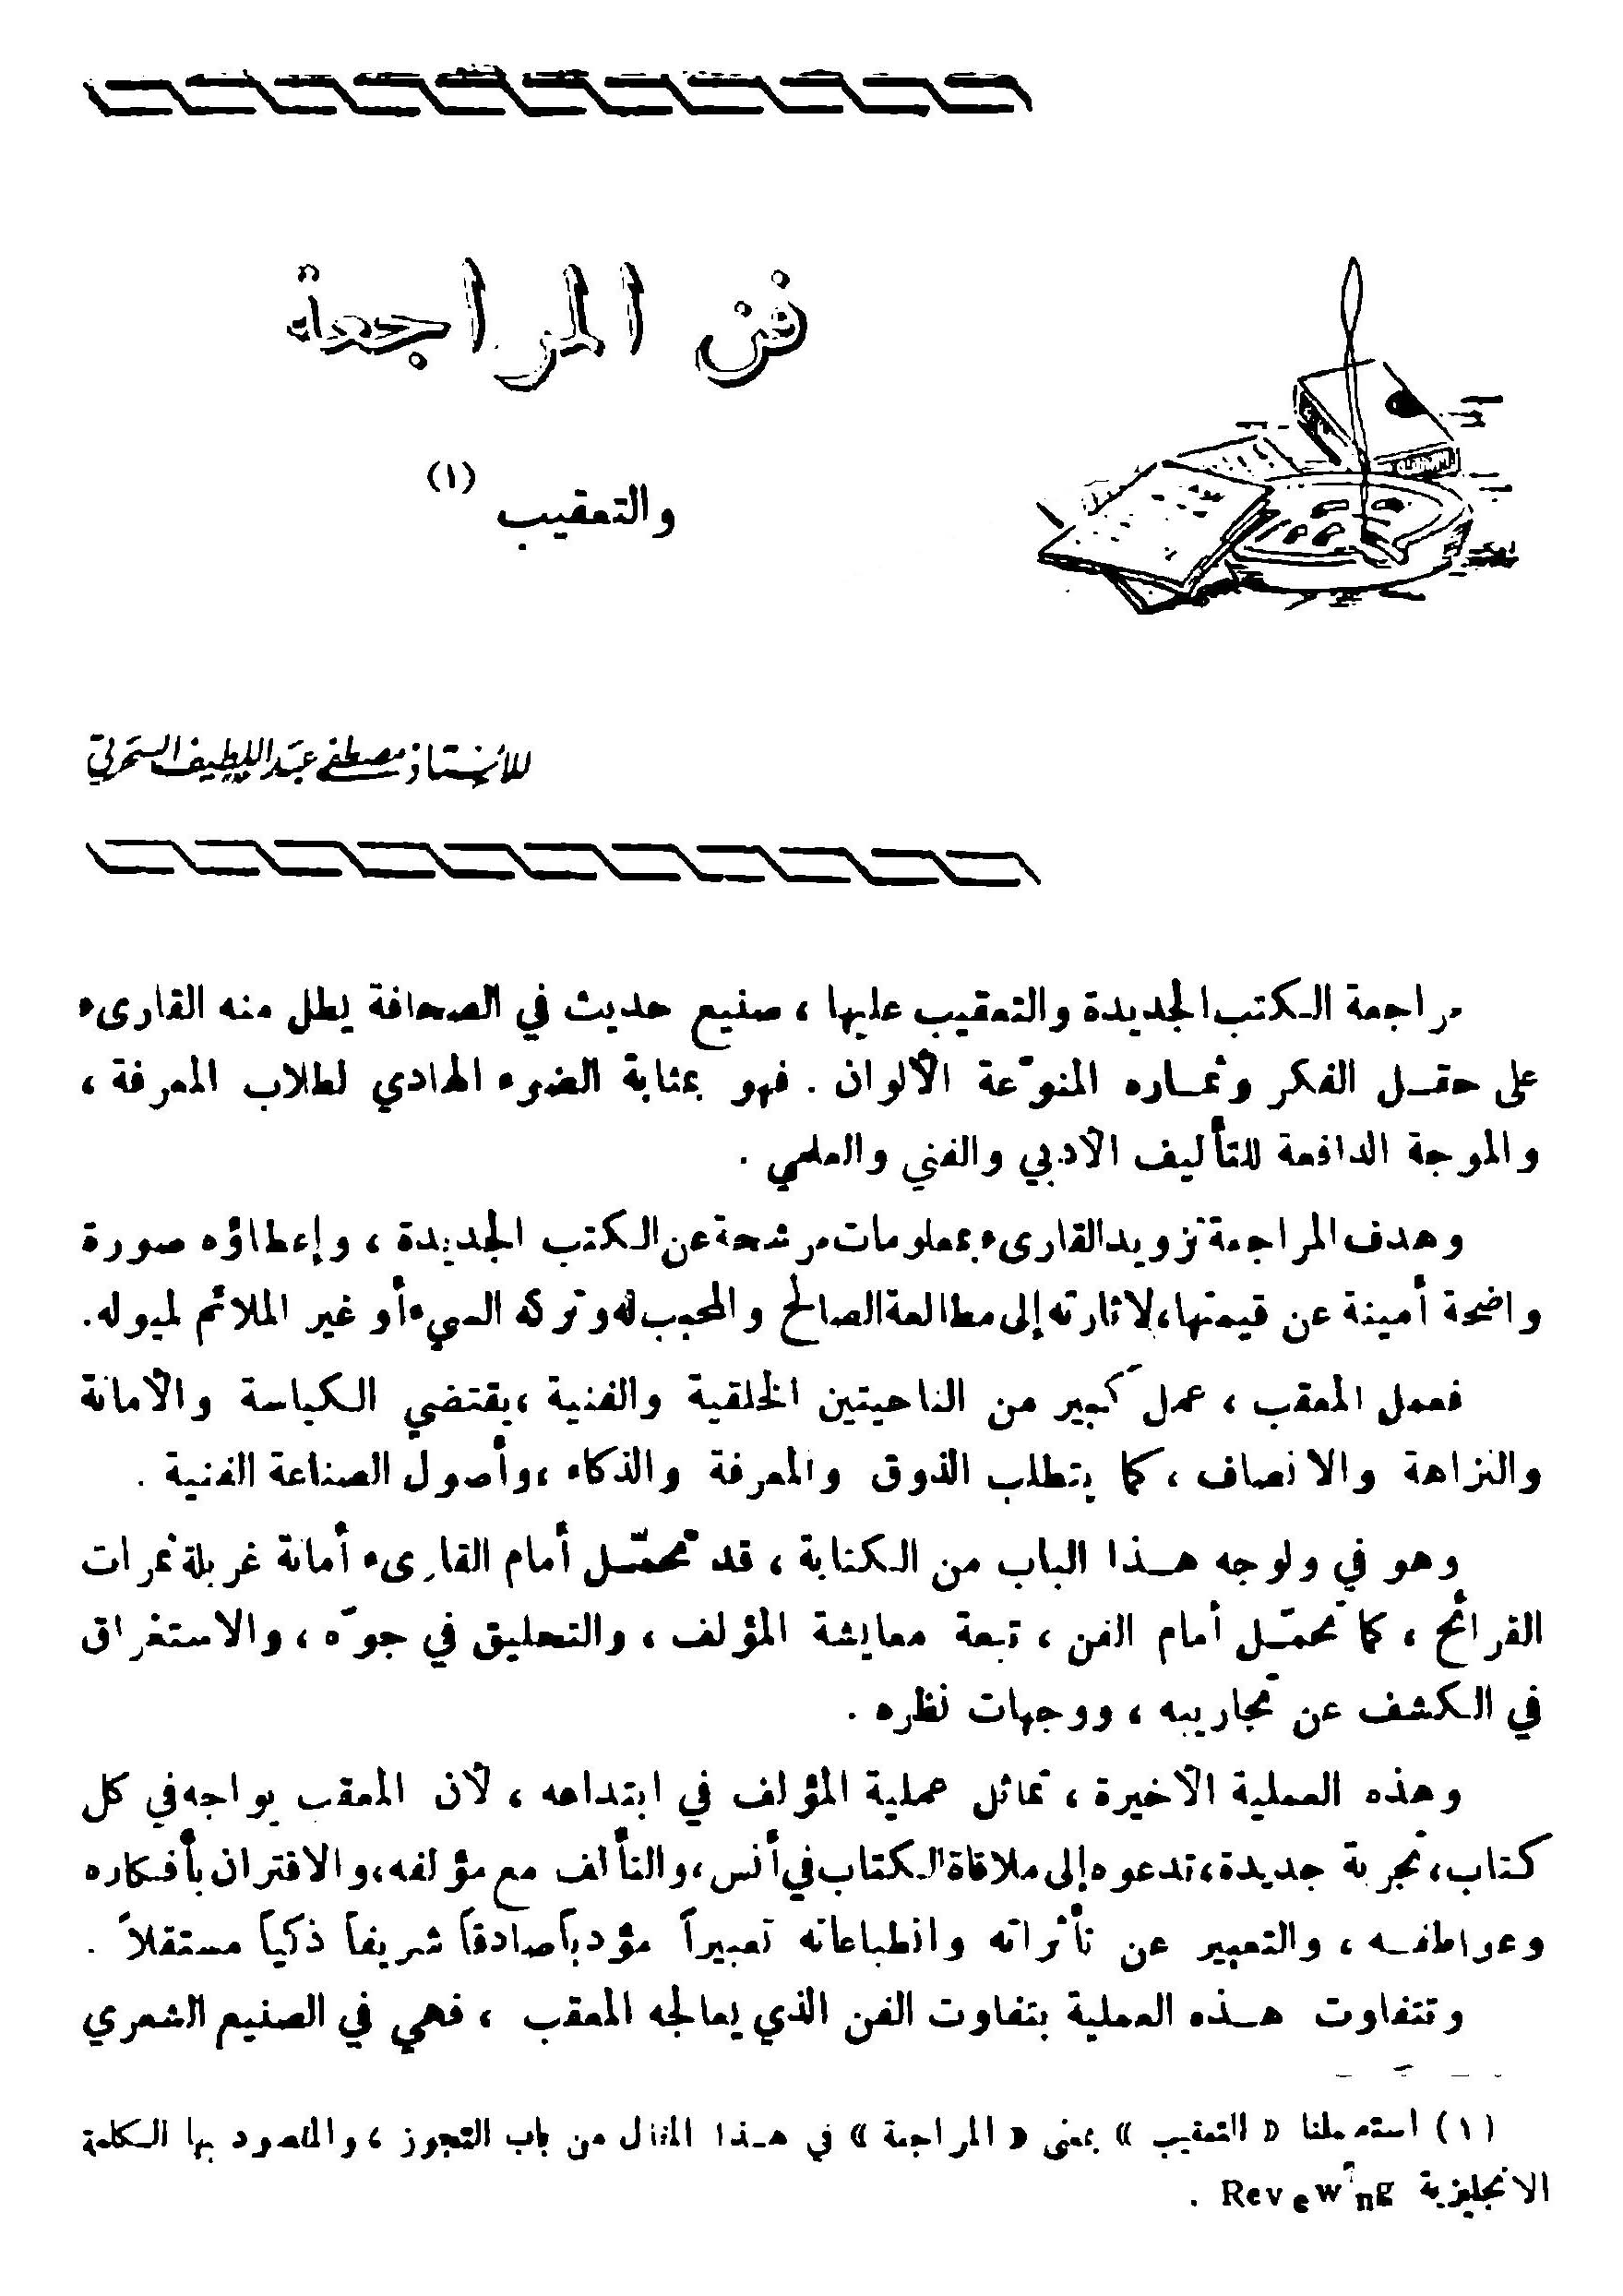 فن المراجعة
والتعقيب (١)
للأستاذ مصطفى عبد اللطيف السحرتي
مراجعة الكتب الجديدة والتعقيب عليها ، صنيع حديث في الصحافة يطل منه القارىء
على حقل الفكر وثماره المنوّعة الألوان . فهو بمثابة الضوء الهادي لطلاب المعرفة ،
والموجة الدافعة للتأليف الأدبي والفني والعلمي .
وهدف المراجعة تزويد القارىء بمعلومات مرشحة عن الكتب الجديدة ، وإعطاؤه صورة
واضحة أمينة عن قيمتها، لاثارته إلى مطالعة الصالح والمحبب له وترك السيء أو غير الملائم لميوله.
فعمل المعقب ، عمل كبير من الناحيتين الخلقية والفنية ، يقتضي الكياسة والأمانة
والنزاهة والانصاف ، كما يتطلب الذوق والمعرفة والذكاء ، وأصول الصناعة الفنية .
وهو في ولوجه هذا الباب من الكتابة ، قد تحمّل أمام القارىء أمانة غربلة ثمرات
القرائح ، كما تحمّل أمام الفن ، تبعة معايشة المؤلف ، والتحليق في جوّه ، والاستغراق
في الكشف عن تجاريبه ، ووجهات نظره .
وهذه العملية الأخيرة ، تماثل عملية المؤلف في ابتداعه ، لأن المعقب يواجه في كل
كتاب، تجربة جديدة، تدعوه إلى ملاقاة الكتاب في أنس، والتآلف مع مؤلفه، والاقتران بأفكاره
وعواطفه ، والتعبير عن تأثراته وانطباعاته تعبيراً مؤدباً صادقاً شريفاً ذكياً مستقلاً .
وتتفاوت هذه العملية بتفاوت الفن الذي يعالجه المعقب ، فهي في الصنيع الشعري
(١) استعملنا « التعقيب » بمعنى « المراجعة » في هذا المقال من باب التجوز ، والمقصود بها الكلمة
الانجليزية Revewing .